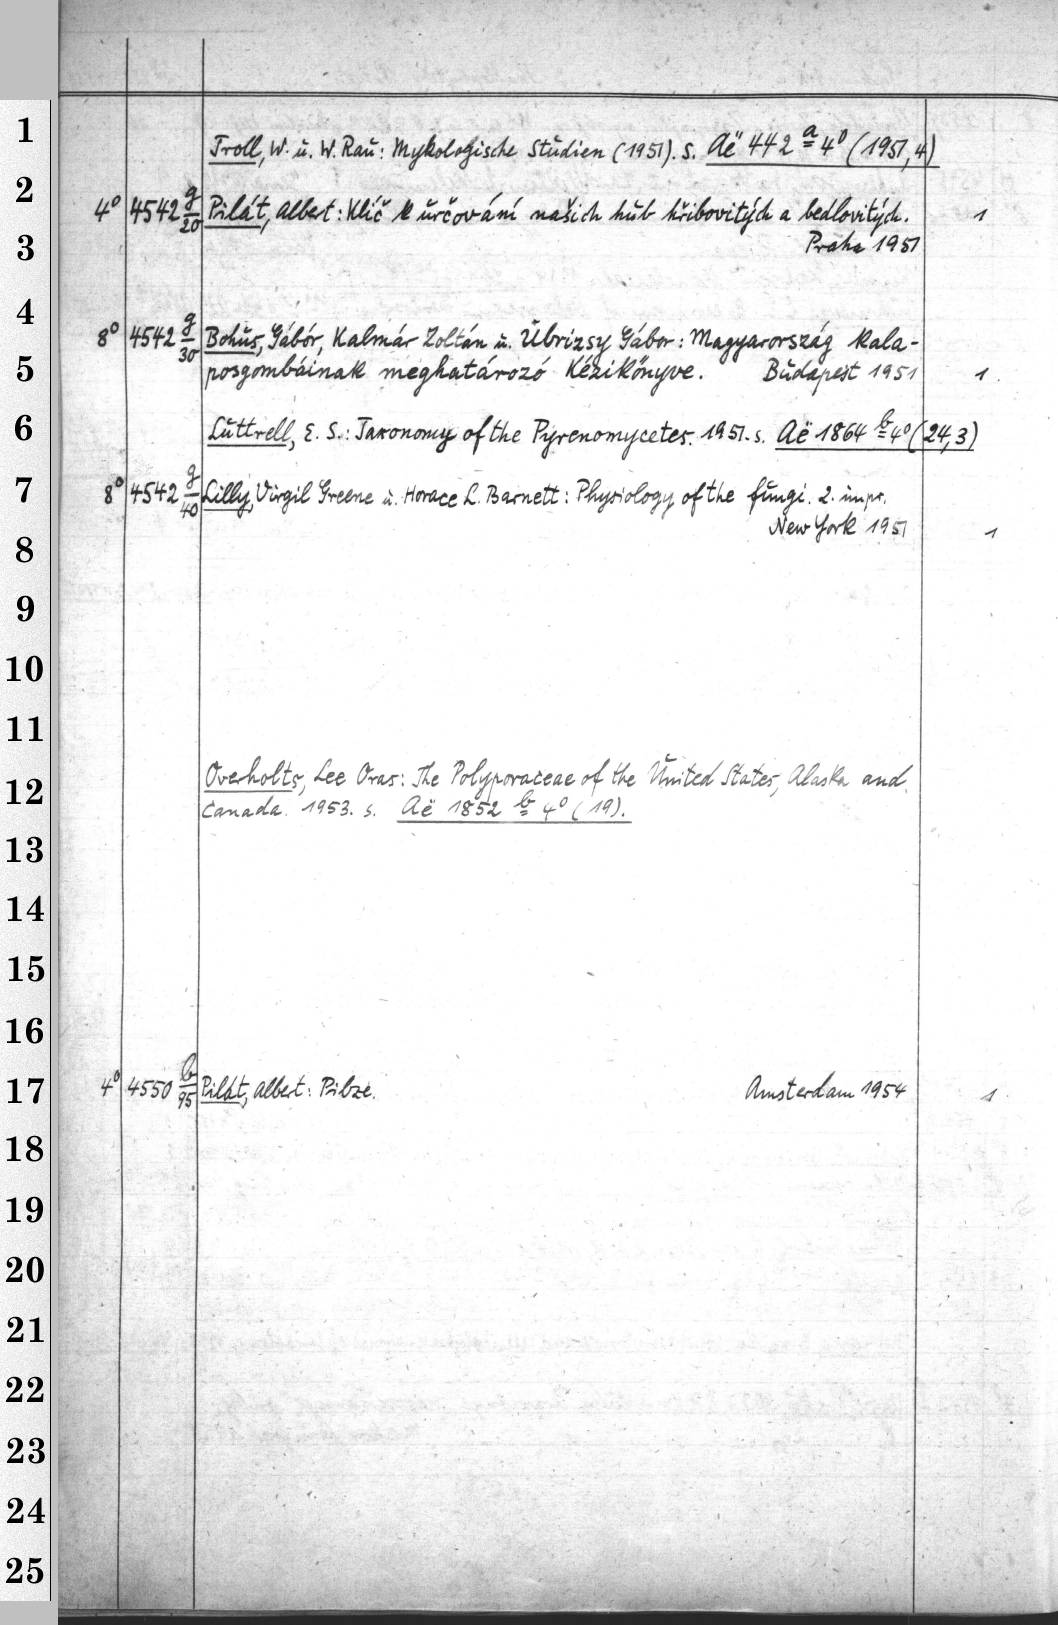 1
Troll, W. u. W. Rau: Mykologische Studien (1951). s. Aë 442 a = 4° (1951, 4)
2
4° 4542 g/20 Pilát, Albert: Klíč k určování našich hub hřibovitých a bedlovitých. 1
3
Praha 1951
4
8° 4542 g/30 Bohus, Gábór, Kalmár Zoltán u. Ubrizsy Gábor: Magyarország kala-
5
posgombáinak meghatározó Kézikönyve. Budapest 1951 1
6
Luttrell, E. S.: Taxonomy of the Pyrenomycetes. 1951. s. Aë 1864 b = 4° (24,3)
7
8° 4542 g/40 Lilly, Virgil Greene u. Horace L. Barnett: Physiology of the fungi. 2. impr.
8
New York 1951 1
9
10
11
12
Overholts, Lee Oras: The Polyporaceae of the United States, Alaska and
Canada. 1953. s. Aë 1852 b = 4° (19).
13
14
15
16
17
4° 4550 b/95 Pilát, Albert: Pilze. Amsterdam 1954 1
18
19
20
21
22
23
24
25